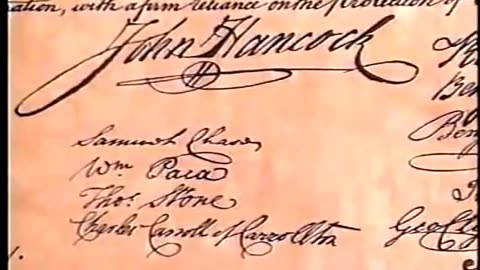 ation, with a firm reliance on the Protection of
John Hancock
Samuel Chase
Wm. Paca
Thos. Stone
Charles Carroll of Carrollton
R
Ben
Benj
Geo. Cly